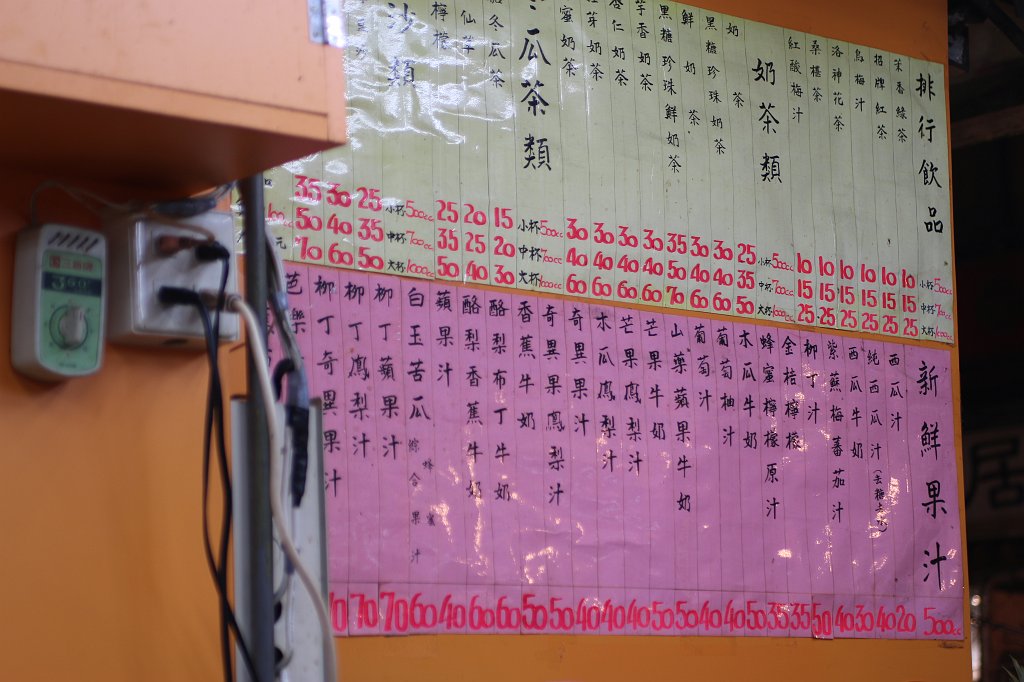 排行飲品
茉香綠茶
招牌紅茶
烏梅汁
洛神花茶
桑椹茶
紅酸梅汁
奶茶類
奶茶
黑糖珍珠奶茶
鮮奶茶
黑糖珍珠鮮奶茶
芋香奶茶
杏仁奶茶
奶茶
蜜奶茶
瓜茶類
冬瓜茶
仙草
檸檬
沙類
小杯500cc
中杯700cc
大杯1000cc
10 10 10 10 10 10
15 15 15 15 15 15
25 25 25 25 25 25
小杯500cc
中杯700cc
大杯1000cc
25 30 30 35 30 30 30 30
35 40 40 50 40 40 40 40
50 60 60 70 60 60 60 60
小杯500cc
中杯700cc
大杯1000cc
15 20 25
20 25 35
30 40 50
小杯500cc
中杯700cc
大杯1000cc
25 30 35
35 40 50
50 60 70
元
新鮮果汁
500cc
西瓜汁 20
純西瓜汁 40
西瓜牛奶 30
紫蘇梅蕃茄汁 40
柳丁汁 50
金桔檸檬 35
蜂蜜檸檬原汁 35
木瓜牛奶 50
葡萄柚汁 40
葡萄汁 40
山藥蘋果牛奶 50
芒果牛奶 50
芒果鳳梨汁 40
木瓜鳳梨汁 40
奇異果汁 40
奇異果鳳梨汁 50
香蕉牛奶 50
酪梨布丁牛奶 60
酪梨香蕉牛奶 60
蘋果汁 40
白玉苦瓜綜合果汁 蜂蜜 60
柳丁蘋果汁 70
柳丁鳳梨汁 70
柳丁奇異果汁
芭樂
居